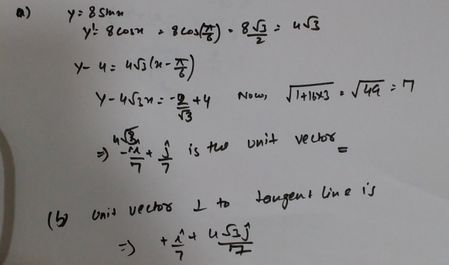 a) y = 8 sin x
y' = 8 cos x = 8 cos(π/6) = 8√3/2 = 4√3
y - 4 = 4√3 (x - π/6)
y - 4√3 x = -2/√3 + 4 Now, √1+16×3 = √49 = 7
⇒ -4√3 î/7 + ĵ/7 is the unit vector
(b) unit vector ⊥ to tangent line is
⇒ + î/7 + 4√3 ĵ/7